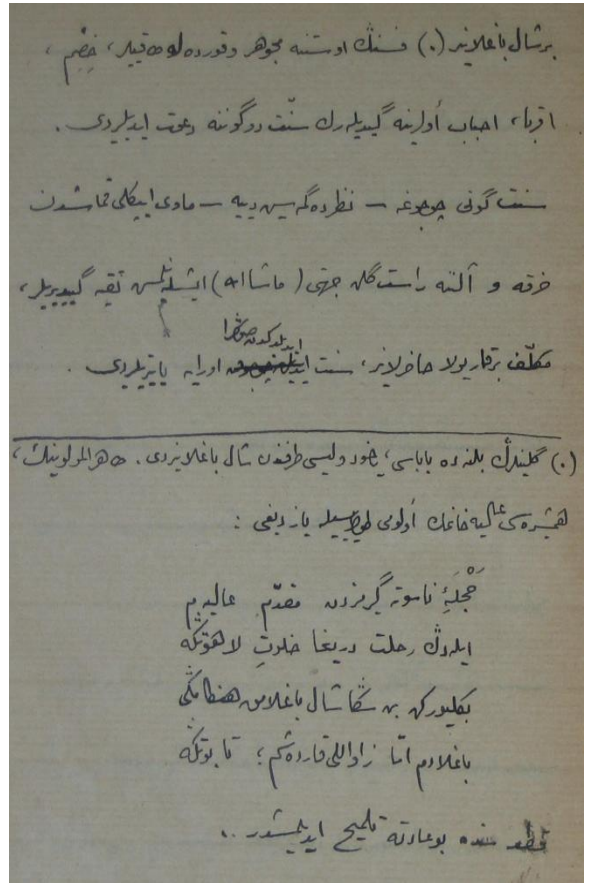 بر شال باغلانیر (٠) فسنڭ اوستنه مجوهر وقورده‌له طاقیلیر، خِصِم،
اقربا، احباب أولرینه گیدیله‌رك سنّت دوگوننه دعوت ایدیلیردی.
سنت گونی چوجوغه — نظر ده‌گمه‌سین دییه — ماوی ایپکلی قماشدن
خرقه و آلننه راست گلن جهتی (ماشاالله) ایشله‌نیلمش تقیه گییدیریلیر،
مكلّف بر قاریولا حاضرلانیر، سنت ایدیلدكدن صوڭرا اورایه یاتیریلیردی.
(٠) گلینلرڭ بلنه ده باباسی، یاخود ولیسی طرفندن شال باغلانیردی. طاهر المولوینڭ،
همشیره‌سی عالیه خانمڭ أولومی طولاییسیله یازدیغی:
حَجلَهٔ ناسوته گیرمزدن مقدّم عالیه‌م
ایله‌دڭ رحلت دریغا خلوتِ لاهوتكه
بكلیوركن بن سڭا شال باغلامق هنگامنی
باغلادم امّا زواللی قارده‌شم؛ تابوتكه
قطعه‌سنده بو عادته تلمیح ایدیلمشدر..